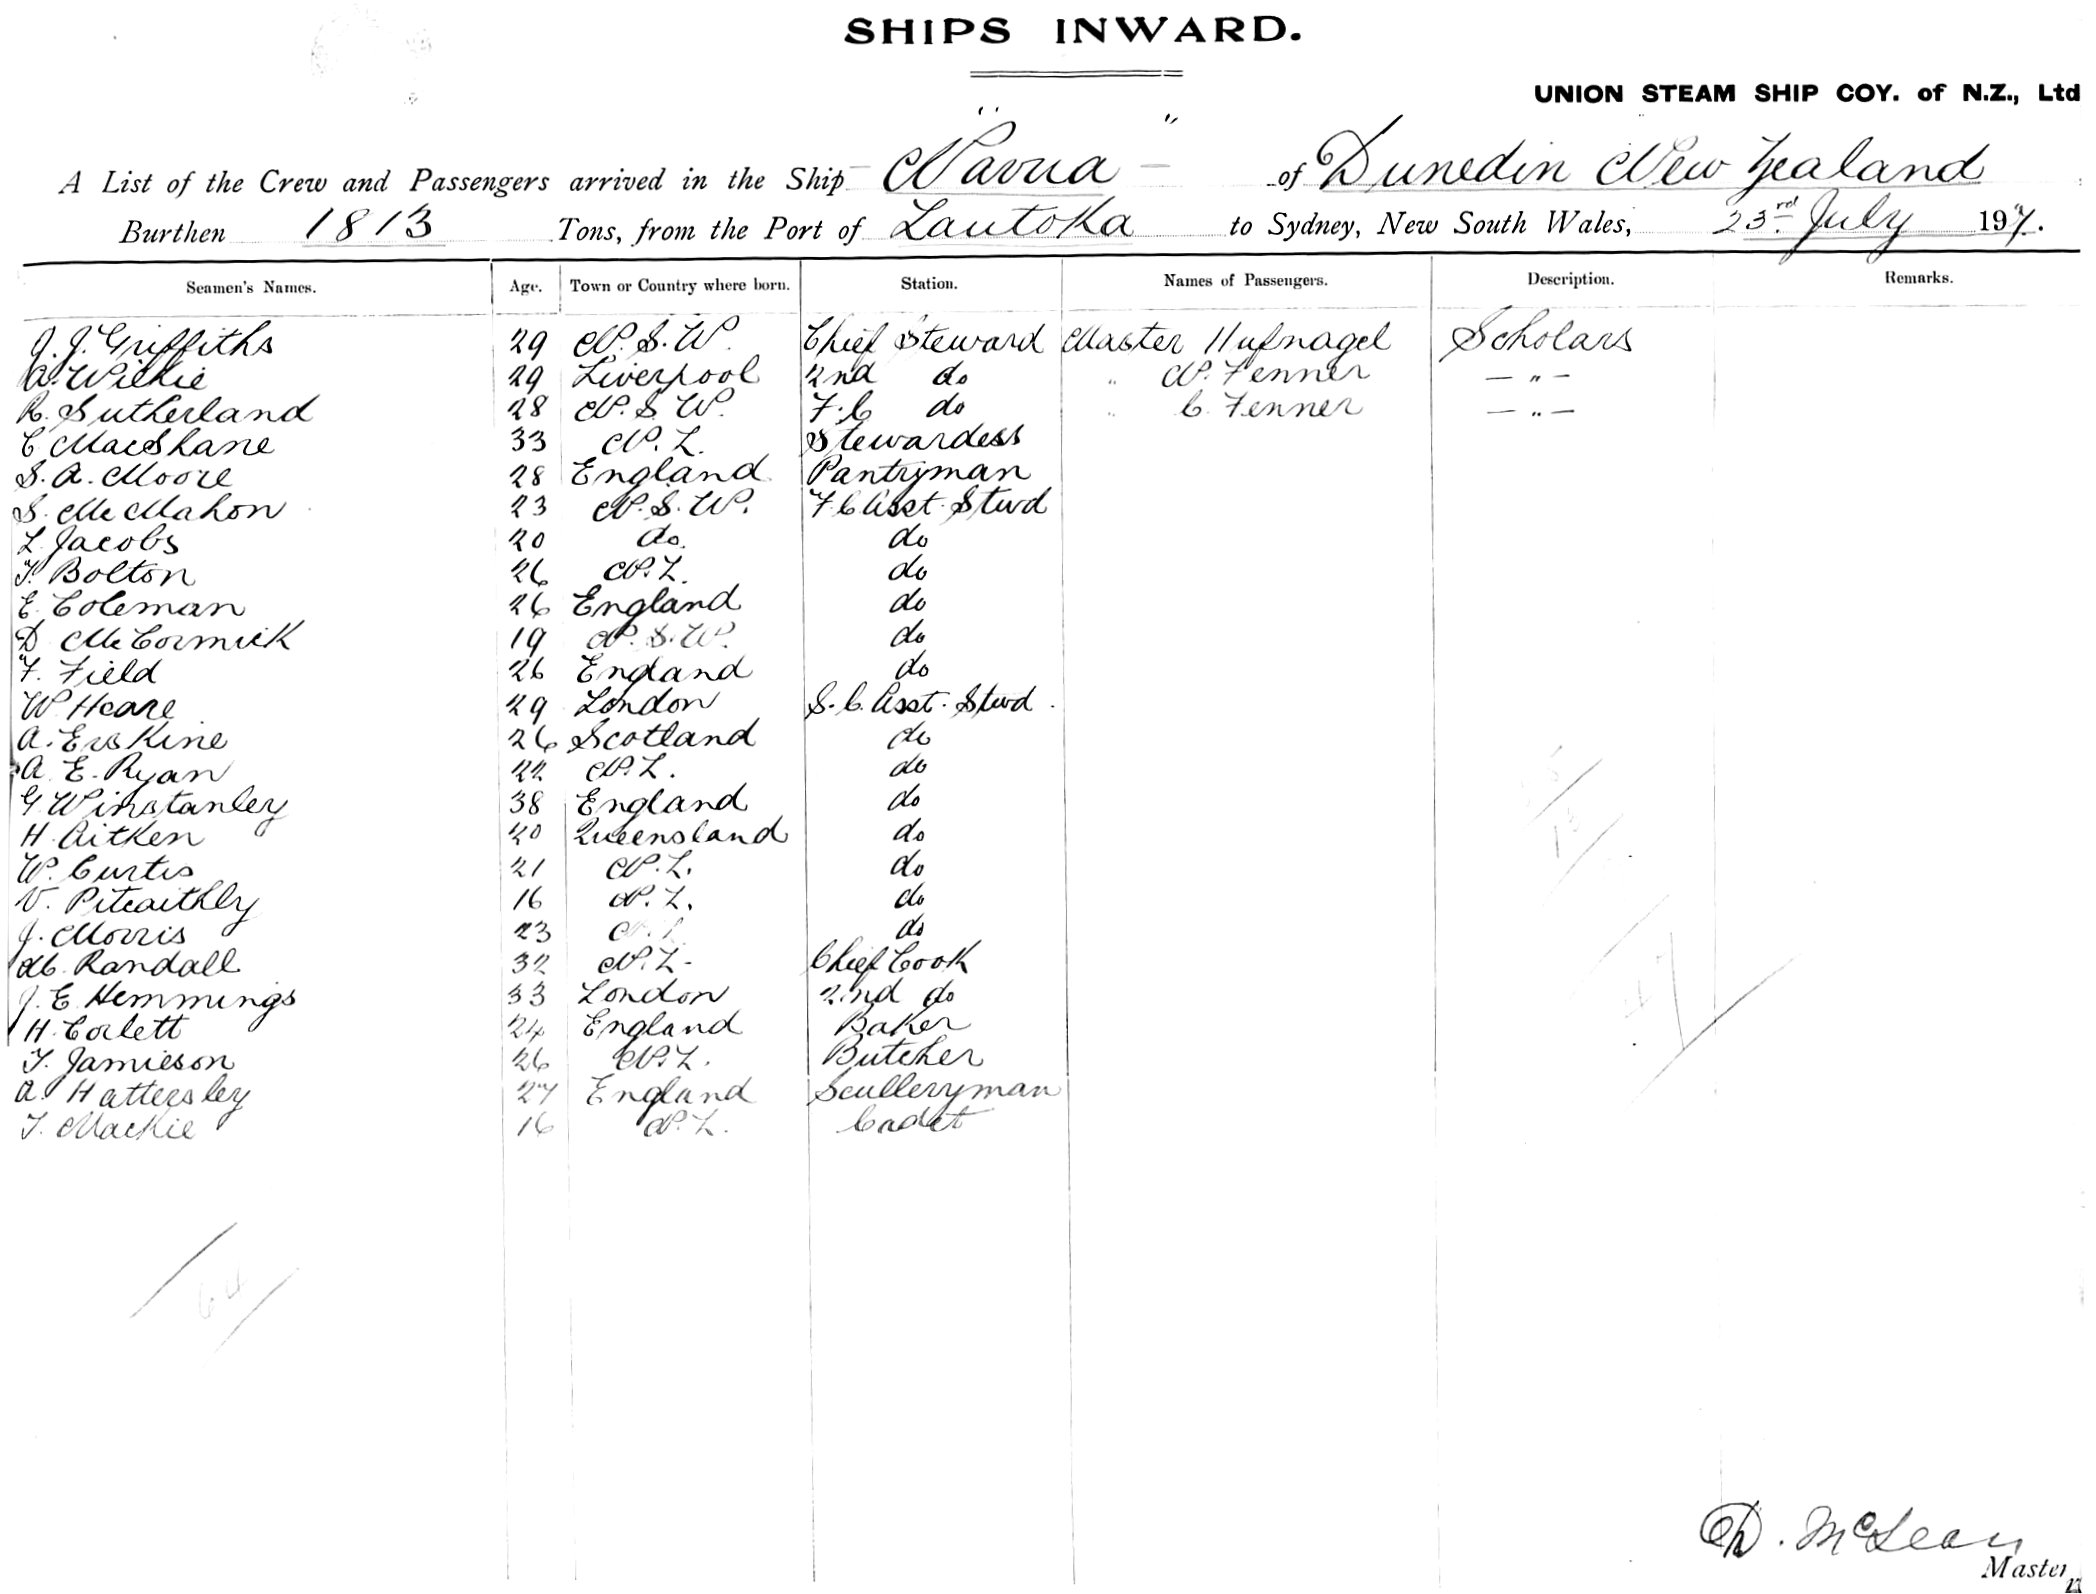 SHIPS INWARD.
UNION STEAM SHIP COY. of N.Z., Ltd
A List of the Crew and Passengers arrived in the Ship "Navua" of Dunedin New Zealand
Burthen 1813 Tons, from the Port of Lautoka to Sydney, New South Wales, 23rd July 197.
Seamen's Names. Age. Town or Country where born. Station. Names of Passengers. Description. Remarks.
J. J. Griffiths 29 N. S. W. Chief Steward Master Hufnagel Scholars
A. Wilkie 29 Liverpool 2nd do " N. Fenner — " —
R. Sutherland 28 N. S. W. F. C do " C. Fenner — " —
C MacShane 33 N. Z. Stewardess
S. A. Moore 28 England Pantryman
S. McMahon 23 N. S. W. F C Asst. Stwd
L. Jacobs 20 do. do
T. Bolton 26 N. Z. do
E. Coleman 26 England do
D McCormick 19 N. S. W. do
F. Field 26 England do
W. Hoare 29 London S. C. Asst. Stwd.
A. Erskine 26 Scotland do
A. E. Ryan 22 N. Z. do
G Winstanley 38 England do
H. Aitken 20 Queensland do
W. Curtis 21 N. Z. do
V. Pitcaithly 16 N. Z. do
J. Morris 23 do
Randall 32 N. Z. Chief Cook
J. E. Hemmings 33 London 2nd do
H. Corlett 24 England Baker
T. Jamieson 26 N. Z. Butcher
A. Hattersley 27 England Sculleryman
T. Mackie 16 N. Z. Cadet
64
D. McLean
Master